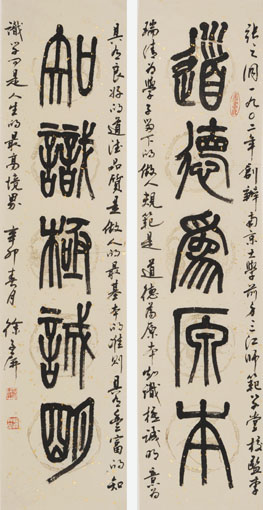 张之洞一九〇二年創辦南京大學前身三江師範学堂校監李
道德為原本
瑞清为學子留下的做人規範是道德為原本知識極誠明意为
具有良好的道德品質是做人的最基本的准則具有豐富的知
知識極誠明
識学问是人生的最高境界 辛卯春月 徐